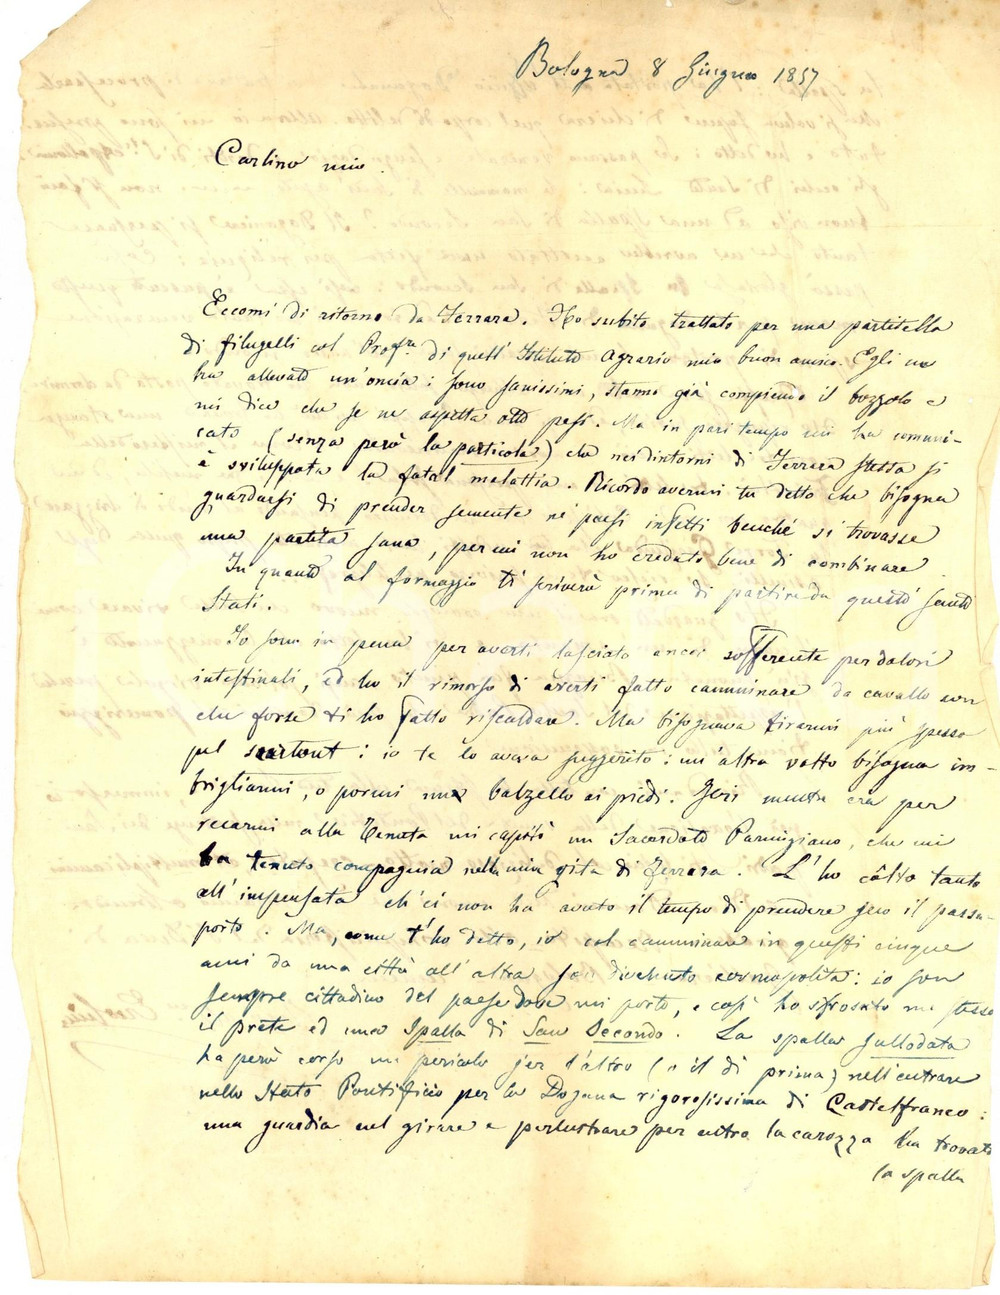 Bologna 8 Giugno 1857
Carlino mio.
Eccomi di ritorno da Ferrara. Ho subito trattato per una partitella
di filugelli col Profre. di quell' Istituto Agrario mio buon amico. Egli ne
ha allevato un'oncia: sono sanissimi, stanno già compiendo il bozzolo e
mi dice che se ne aspetta otto pesi. Ma in pari tempo mi ha comuni-
cato (senza però la particola) che nei dintorni di Ferrara stessa si
è sviluppata la fatal malattia. Ricordo avermi tu detto che bisogna
guardarsi di prender semente ne' paesi infetti benché si trovasse
una partita sana, per cui non ho creduto bene di combinare.
In quanto al formaggio ti scriverò prima di partire da questi Santi
Stati.
Io sono in pena per averti lasciato ancor sofferente per dolori
intestinali, ed ho il rimorso di averti fatto camminare da cavallo con
che forse ti ho fatto riscaldare. Ma bisognava tirarmi più spesso
pel surtout: io te lo aveva suggerito: un'altra volta bisogna im-
brigliarmi, o pormi una balzello ai piedi. Ieri mentre era per
recarmi alla Tenuta mi capitò un Sacerdote Parmigiano, che mi
ha tenuto compagnia nella mia gita di Ferrara. L'ho côlto tanto
all'impensata ch'ei non ha avuto il tempo di prendere seco il passa-
porto. Ma, come t'ho detto, io col camminare in questi cinque
anni da una città all'altra son divenuto cosmopolita: io son
sempre cittadino del paese dove mi porto, e così ho sfrosato me stesso
il prete ed una Spalla di San Secondo. La spalla sullodata
ha però corso un pericolo jer l'altro (o il dì prima) nell'entrare
nello Stato Pontificio per la Dogana rigorosissima di Castelfranco:
una guardia nel girare e perlustrare per entro la carozza ha trovato
la spalla